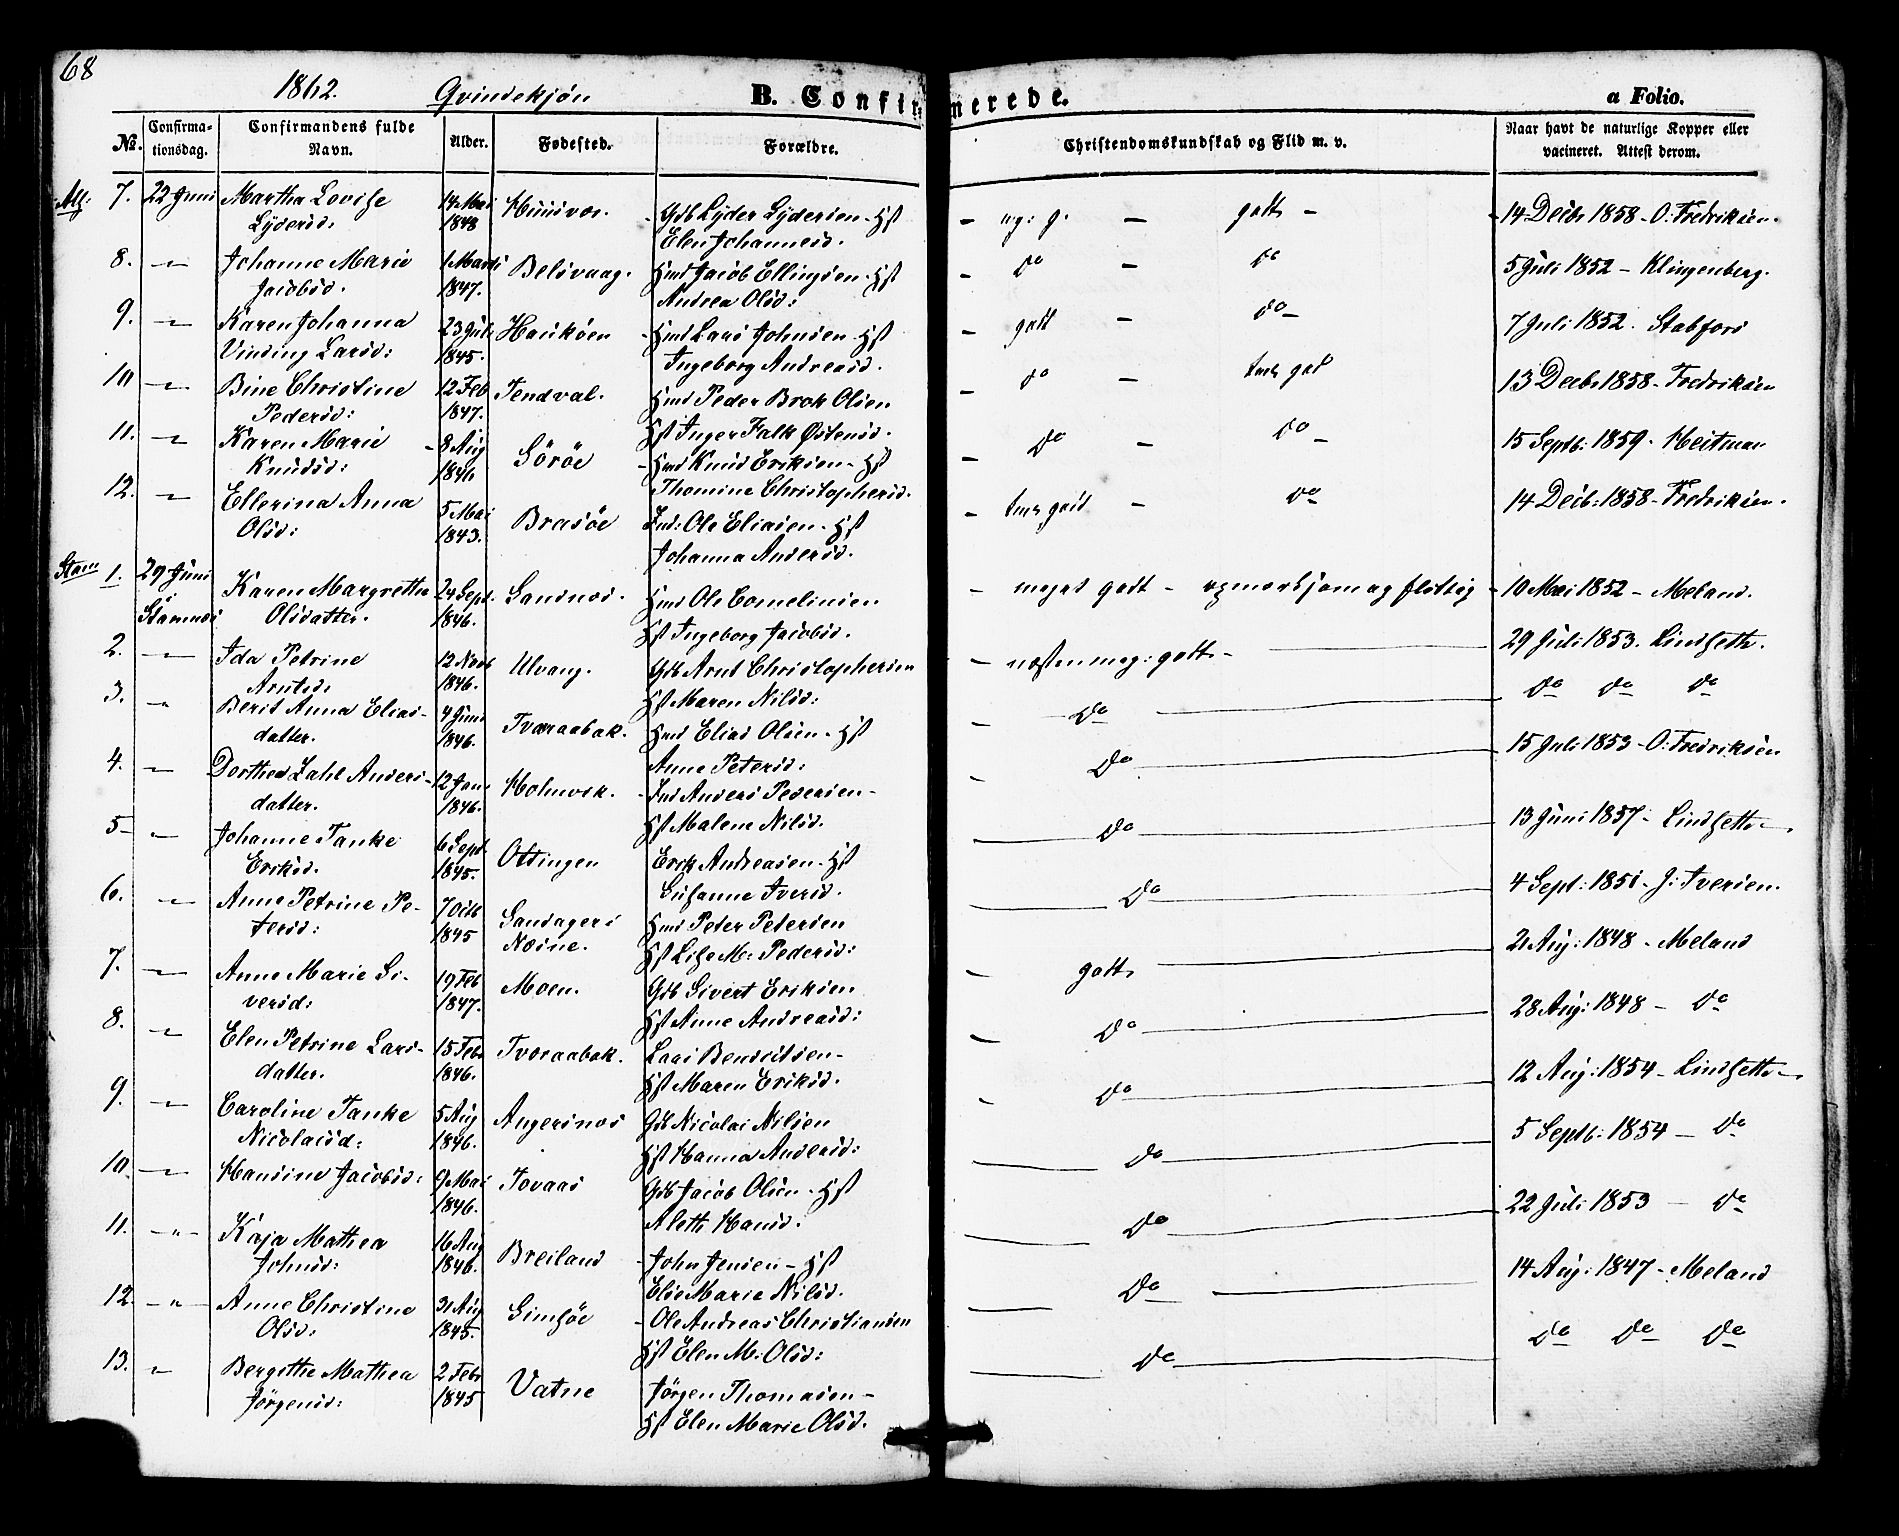 68
1862. Qvindekjøn B. Confirmerede. a Folio.
No. Confirmationsdag. Confirmandens fulde Navn. Alder. Fødested. Forældre. Christendomskundskab og Flid m. v. Naar havt de naturlige Kopper eller vacineret. Attest derom.
7. 22 Juni Martha Lovise 14 Mai Gdb Lyder Lydersen - Hst - mg: g. - godt - 14 Decbr 1858 - O: Fredriksen.
Lydersd: 1848 Elen Johannesd.
8. - " - Johanne Marie 1 Marts Belsvaag. Hmd Jacob Ellingsen - Hst - do - do 5 Juli 1852 - Klingenberg.
Jacobsd. 1847. Andrea Olsd:
9. - " - Karen Johanna 23 Juli Hmd Lars Johnsen - Hst - godt - do - 7 Juli 1852.
Vinding Larsd: 1845. Ingeborg Andreasd.
10 - " - Bine Christine 12 Feb Tendval. Hmd Peder Brok Olsen - do - 13 Decbr 1858 - Fredriksen
Pedersd: 1847. Hst Inger Falk Østensd.
11. - " - Karen Marie 8 Aug Söröe Hmd Knud Eriksen - Hst - do - do - 15 Septb: 1859 - Heitman
Knudsd: 1846 Thomine Christophersd.
12. - " - Ellerina Anna 5 Mai Brasöe Ind: Ole Eliasen - Hst - do 14 Decb: 1858 - Fredriksen.
Olsd: 1843. Johanna Andersd.
Stam 1. 29 Juni Karen Margrethe 24 Sept. Sandnes. Hmd Ole Corneliusen - meget godt - opmærksom og flittig - 10 Mai 1852 - Meland.
i Stamnes Olsdatter. 1846. Hst Ingeborg Jacobsd.
2. - " - Ida Petrine 12 Novb Ulvang. Gdb Arnt Christophersen - næsten meg: godt - 29 Juli 1853. Lindseth.
Arntsd: 1846. Hst Maren Nilsd:
3. " Berit Anna Elias- 4 Juni Tværaabak. Hmd Elias Olsen - Hst - do do do do
datter. 1846. Anne Petersd:
4. - " - Dorthea Zahl Anders- 12 Janr Holmvik. Ind Anders Pedersen - - do 15 Juli 1853 - O: Fredriksen
datter. 1846. Hst Malene Nilsd.
5 - " - Johanne Tanke 6 Sept. Ottingen Erik Andreasen - Hst do 13 Juni 1857 - Lindseth
Eriksd. 1845. Susanne Iversd.
6. - " - Anne Petrine Pe- 7 Octb Sandagers Hmd Peter Petersen do 4 Sept: 1851 - J: Iversen.
tersd: 1845 Næsne. Hst Lise M: Pedersd:
7. - " - Anne Marie Si- 19 Feb Moen. Gdb Sivert Eriksen - godt 21 Aug: 1848 - Meland
versd: 1847. Hst Anne Andreasd:
8. - " - Elen Petrine Lars- 15 Febr Tværaabak. Lars Bendictsen - - do 28 Aug: 1848 - do
datter. 1846. Hst Maren Eriksd.
9. - " - Caroline Tanke 5 Aug Angersnes Gdb Nicolai Nilsen - do 12 Aug: 1854 - Lindseth
Nicolaisd: 1846. Hst Hanna Andersd:
10. - " - Hansine Jacobsd: 9 Mai Tovaas Gdb Jacob Olsen - Hst do 5 Septb: 1854 - do
1846. Aleth Hansd.
11. - " - Kaja Mathea 16 Aug Breiland - John Jensen - Hst do 22 Juli 1853 - do
Johnsd: 1846. Else Marie Nilsd.
12. - " - Anne Christine 31 Aug Gimsöe - Ole Andreas Christiansen do 14 Aug: 1847 - Meland
Olsd: 1845. Hst Elen M: Olsd:
13. " Bergithe Mathea 2 Febr Vatne Jörgen Thomasen - do do do do
Jörgensd: 1845 Hst Elen Marie Olsd.